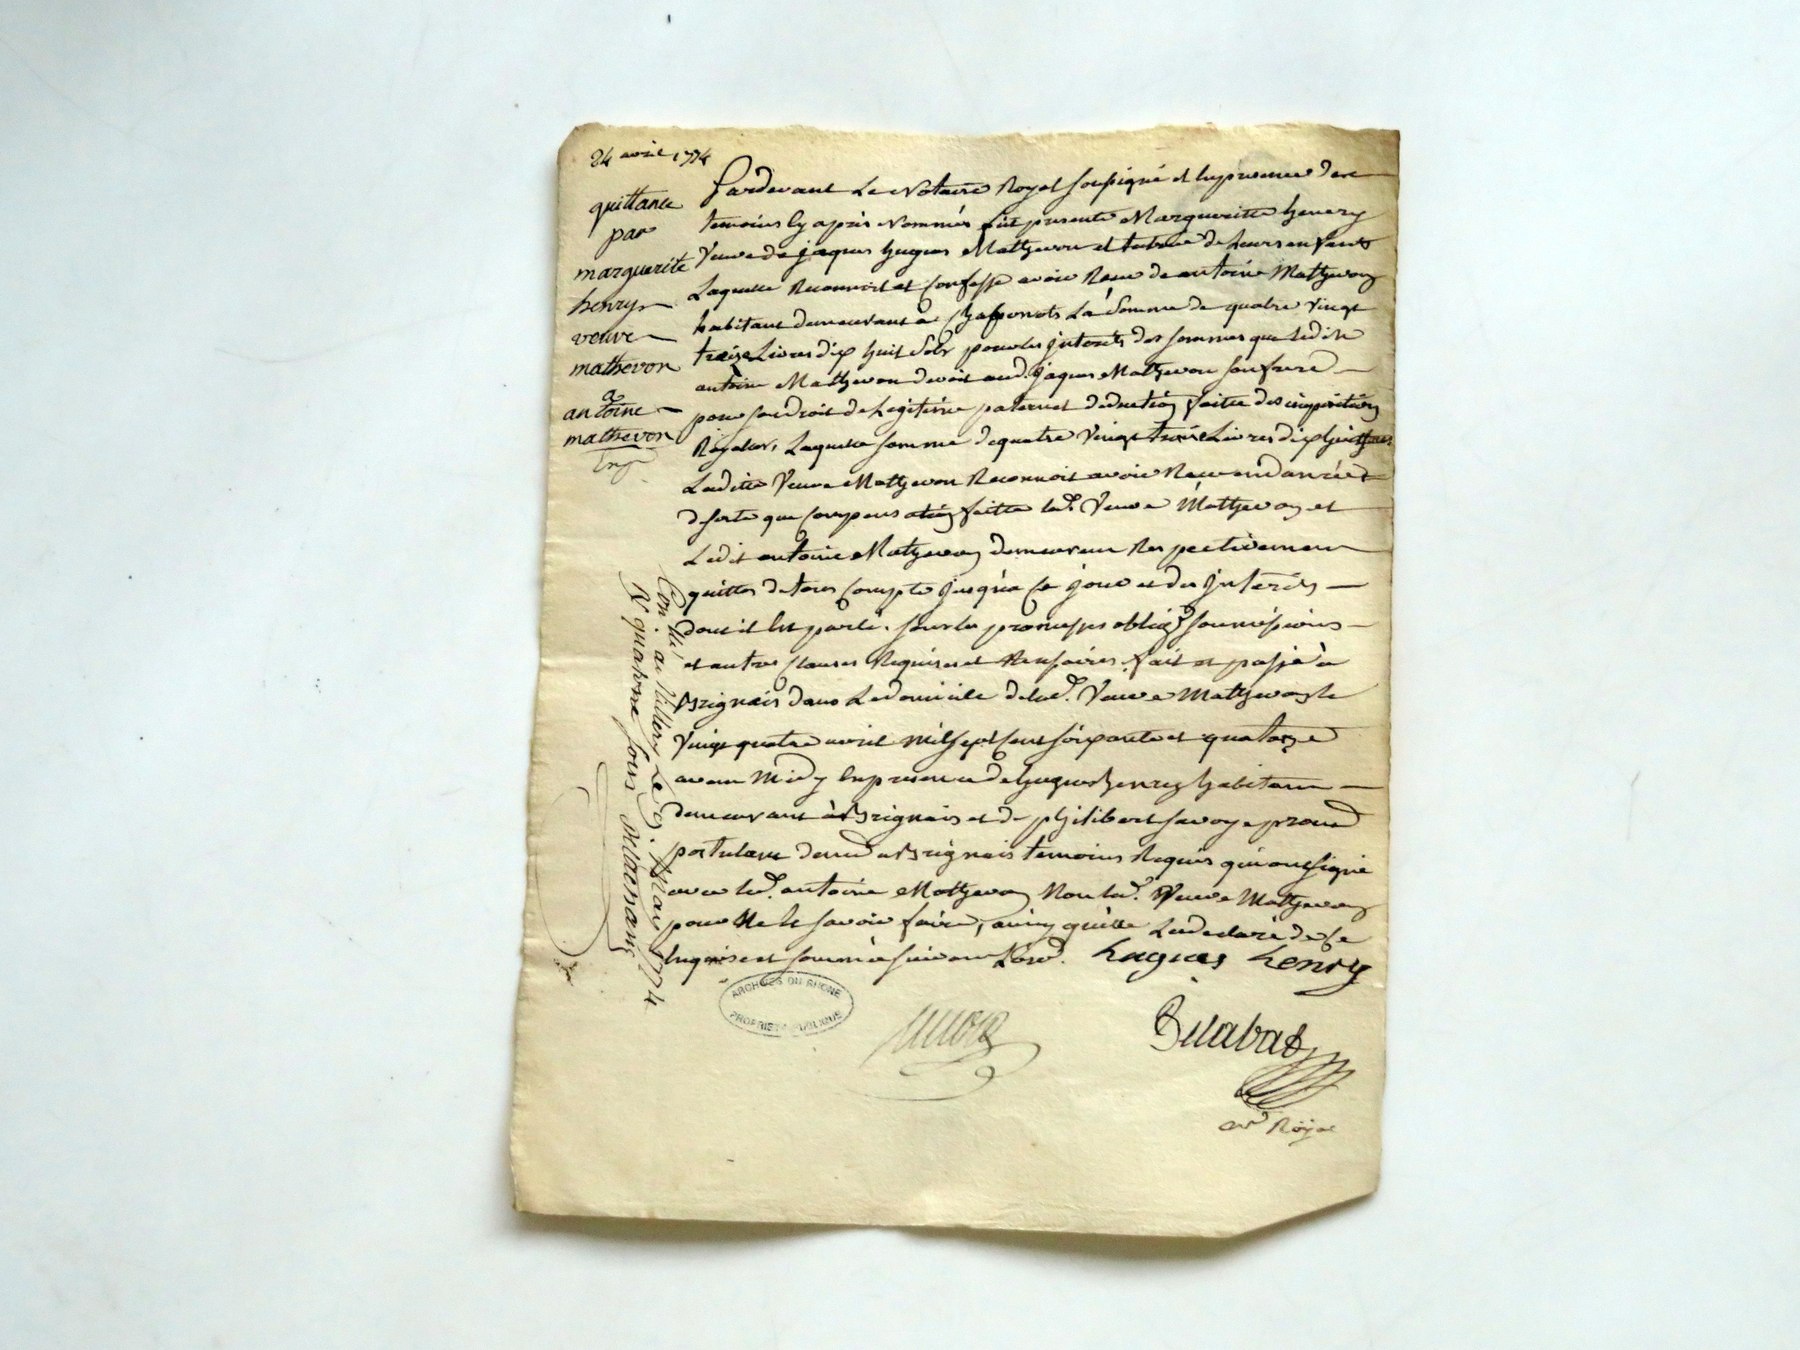 24 avril 1774
quittance
par
marguerite
henry
veuve
mathevon
a
antoine
mathevon
Pardevant Le Notaire Royal soussigné et En presence des
temoins Cy après Nommés fût presente Margueritte henery
Veuve de jaques hugues Mathevon et tutrice de Leurs enfants
Laquelle Reconnoit et Confesse avoir Receu de antoine Mathevon
habitant demeurant a Chaponots La Somme de quatre Vingt
treize Livres dix huit Sols pour les jnterets des sommes que Ledit
antoine Mathevon devoit aud. jaques Mathevon son frere
pour son droit de Legitime paternel deduction faitte des impositions
Royalles, Laquelle somme de quatre Vingt treize Livres dix huit
Ladite Veuve Mathevon Reconnoit avoir Receu en danrées
de sorte que Compensation faitte lad. Veuve Mathevon et
Ledit antoine Mathevon demeurent Respectivement
quittes de tous Compte jusqua Ce jour et des jnterets
dont il Est parlé. sous les promesses oblig. soumissions
et autres Clauses Requises et Nessaires. fait et passé a
Brignais dans Le domicile de lad. Veuve Mathevon le
Vingt quatre avril mil sept Cent soixante et quatorze
avant Midy En presence de hugues henry habitant
demeurant à Brignais et de philibert savoye
postulant demt a Brignais temoins Requis qui ont signé
avec led. antoine Mathevon Non lad. Veuve Mathevon
pour Ne le savoir faire, ainsy qu'elle La declaré de Ce
Enquise et sommée suivant L'ord. hugues henry
Con. lé a Millery Le 3. Mai 1774
R. quatorze sous
ARCHIVES DU RHONE
PROPRIETE PUBLIQUE
nre Royal